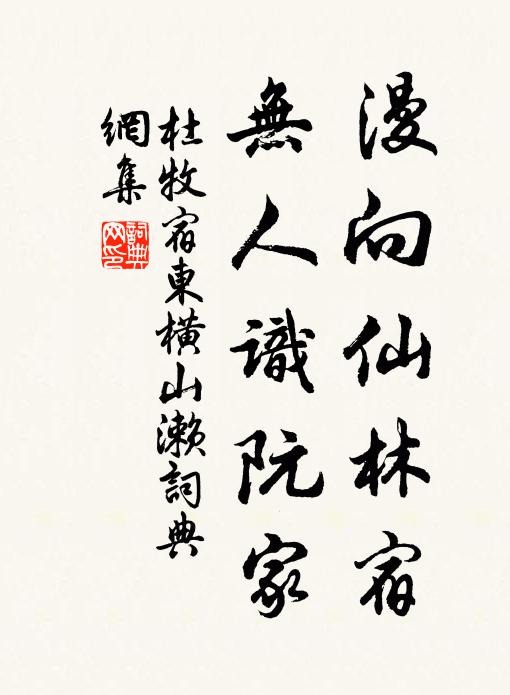 漫向仙林宿
無人識阮家
杜牧宿東橫山瀨詞典
網集
詞典
网印